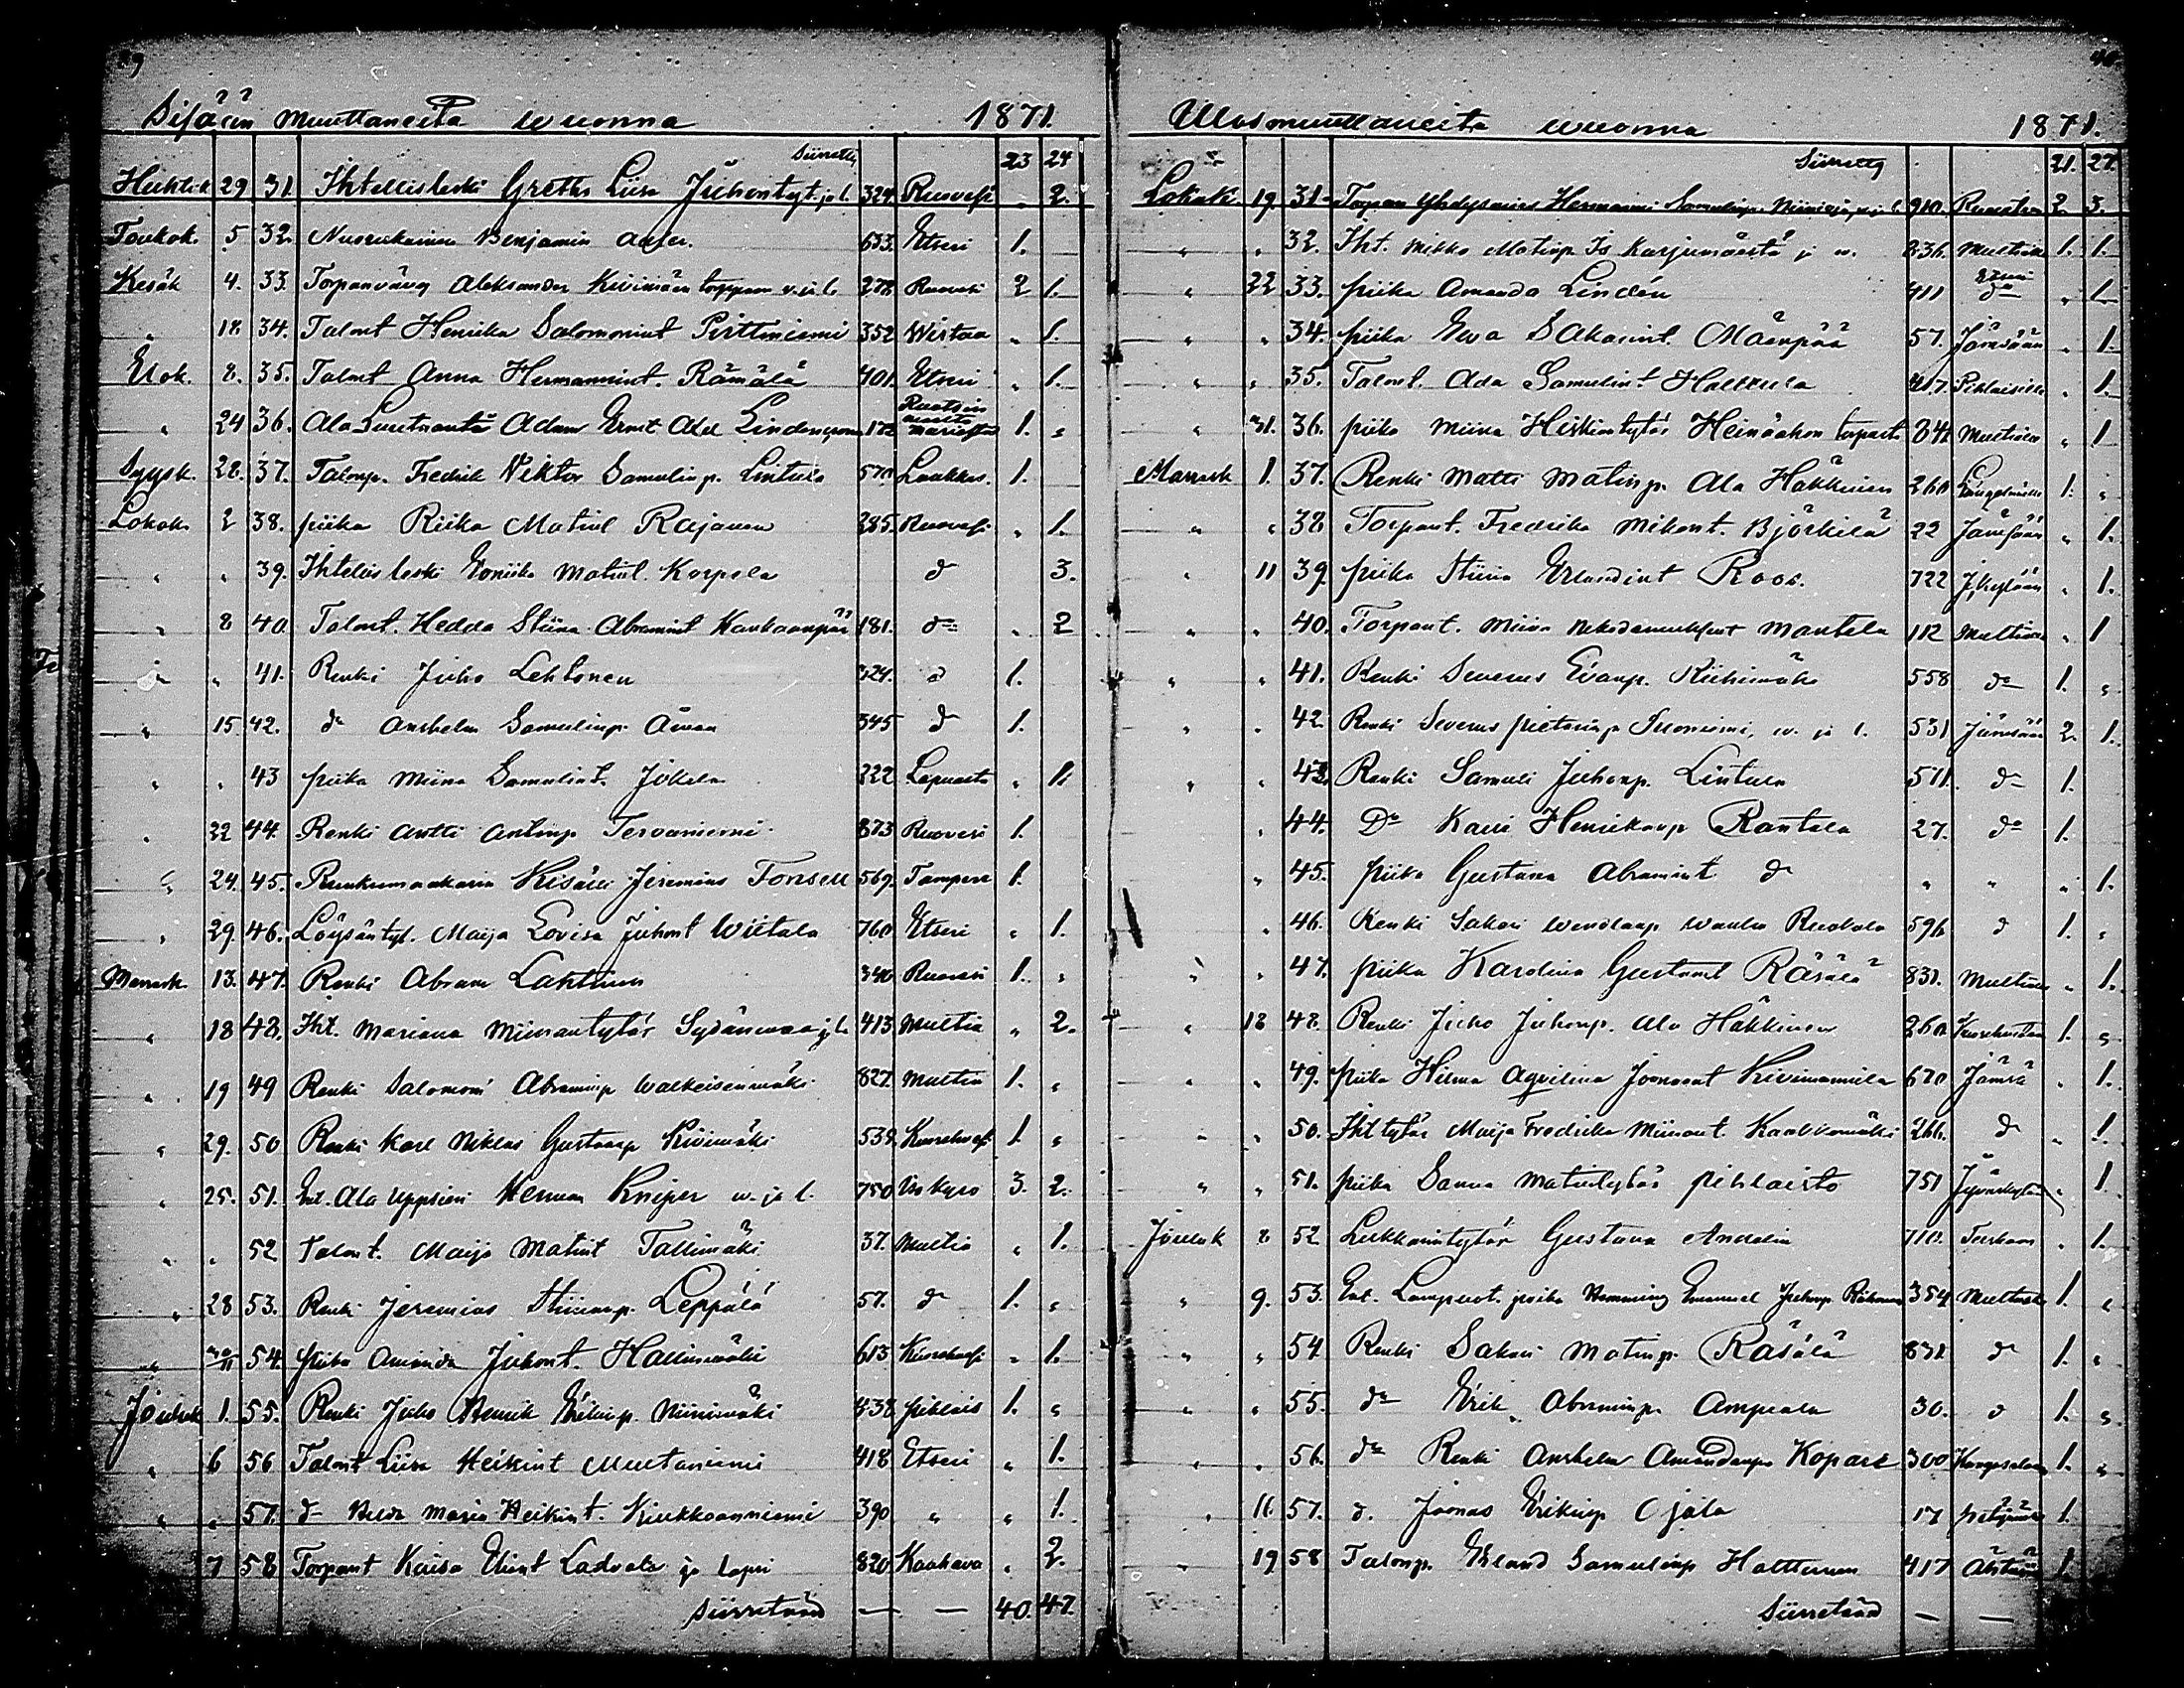 Sisään muuttaneita wuonna 1871
Siirretty 23 24
Huhtik 29 31. Ihtellisleski Gretha Liisa Juhontyt. ja l. 324. Ruovesi „ 2.
Toukok. 5 32. Nuorukainen Benjamin 653. Etseri 1.
Kesäk 4. 33. Torpanvävy Aleksander Kivimäen torppaan v. ja l. 272 Ruovesi 2 1.
„ 18 34. Talont Henrika Salomonint Pirttiniemi 352 Wirtaa „ 1.
Elok. 8. 35. Talont Anna Hermannint. Rämälä 401. Etseri „ 1.
„ 24 36. Ala Luutnantti Adam Ernst Axel 172 Ruotsin 1. „
Syysk. 28. 37. Talonp. Fredrik Viktor Samulinp. Lintula 570 Laukkas. 1.
Lokak 2 38. piika Riika Matint Rajanen 285. Ruovesi „ 1.
„ „ 39. Ihtellisleski Matint. Korpela d 3.
„ 8 40 Talont. Hedda Stiina Abramint Kaukaanpää 181. do „ 2
„ „ 41. Renki Juho Lehtonen 324. d 1.
„ 15 42. do Anshelm Samulinp. 345 do 1.
„ „ 43 piika Miina Samulint. Jokela 222 Lapualta „ 1.
„ 22 44. Renki Antti Antinp Tervaniemi 873 Ruovesi 1.
„ 24. 45. Kisälli Jeremias Fonsell 569. Tampere 1.
„ 29. 46. Löysäntyt. Maija Lovisa Juhont Wiitala 760 Etseri „ 1.
Marrask. 13. 47. Renki Abram Lahtinen 340 Ruovesi 1. „
„ 18 48. Iht. Mariana Miinantytär Sydänmaa j l. 413 Multia „ 2.
„ 19 49 Renki Salomon Abraminp Walkeisenmäki 827. Multia 1. „
„ 29. 50 Renki Karl Niklas Gustaanp Kivimäki 538. Kuorehvesi 1. „
„ 25. 51. Ent. Ala Upseeri Herman Kniper w. ja l. 750 Iso Kyrö 3. 2.
„ „ 52 Talont. Maija Matint Tallimäki 37. Multia „ 1.
„ 28 53. Renki Jeremias Stiinanp. Leppälä 57. do 1. „
„ 30/11 54. piika Amanda Juhont. Hallinmäki 613 Kuorehvesi „ 1.
Jouluk 1. 55. Renki Juho Henrik Erikinp. Niinimäki 438 pihlais 1. „
„ 6 56 Talont Liisa Heikint Multaniemi 418 Etseri „ 1.
„ „ 57. d Hilda Maria Heikint. Kiukkoanniemi 390 „ „ 1.
7 58 Torpant Kaisa Elint Ladvala ja lapsi 820 Kauhava „ 2.
Siirretään — — 40. 47.
Ulosmuuttaneita wuonna 1871.
Siirretty 21. 27.
Lokak. 19. 31. Torpan Yhdysmies Hermanni Samulinp. 910. 2. 3.
„ „ 32. Iht. Mikko Matinp. Is Karjumäestä j w. 836. Multialle 1. 1.
„ 22 33. piika Amanda Lindén 411 do „ 1.
„ „ 34. piika Ewa Sakarint. Mäenpää 57. Jämsään „ 1.
„ „ 35. Talont. Ada Samulint Halkkula 417. „ 1.
„ 31. 36. piika Miina Heikintytär Heinäahon torpasta 841 Multialle „ 1
Marrask 1. 37. Renki Matti Matinp. Ala Häkkinen 260 Längelmälle 1. „
„ „ 38 Torpant. Fredrika Mikont. Björkilä 22 Jämsään „ 1.
„ 11 39. piika Stiina Erlandint Roos. 722 Jkylään „ 1.
„ „ 40. Torpant. Miina Mantela 112 Multialle „ 1
„ „ 41. Renki Severus Evanp. Riihimäki 558 do 1. „
„ „ 42. Renki Severus pietarinp Tuoniemi, w. ja l. 531 Jämsään 2. 1.
„ „ 43. Renki Samuli Juhonp. Lintula 511. do 1.
„ 44. Do Kalli Henrikanp Rantala 27. do 1.
„ 45. piika Gustava Abramint do „ „ „ 1.
„ 46. Renki Sakari Wendlanp Wanha Ruokola 596 d 1. „
„ „ 47. piika Karolina Gustavint Räsälä 831. Multialle „ 1.
„ 18 48. Renki Juho Juhonp. Ala Häkkinen 260. 1. „
„ „ 49. piika Hilma Aqvilina Joonaant Kivimannila 670 Jämsä „ 1.
„ „ 50. Iht tytär Maija Fredrika Miinant. Kaakkomäki 266. do „ 1.
„ „ 51. piika Sanna Matintytär pihlaisto 751 „ 1
Jouluk 8 52 Lukkarintytär Gustava Andelin 710. Turkuun „ 1.
„ 9. 53. Ent. Lampuot. poika Hemming Emanuel Juhonp 354 Multialle 1. „
„ „ 54 Renki Sakari Matinp. Räsälä 831 do 1. „
„ „ 55. do Erik Abraminp. Ampiala 30. d 1. „
„ „ 56. do Renki Anshelm Amandanp. Kopare 300 Kangasalaan 1. „
„ 11. 57. d. Joonas Erikinp Ojala 17 1.
„ 19 58 Talonp. Erland Samulinp Halttunen 417 1.
Siirretään — —